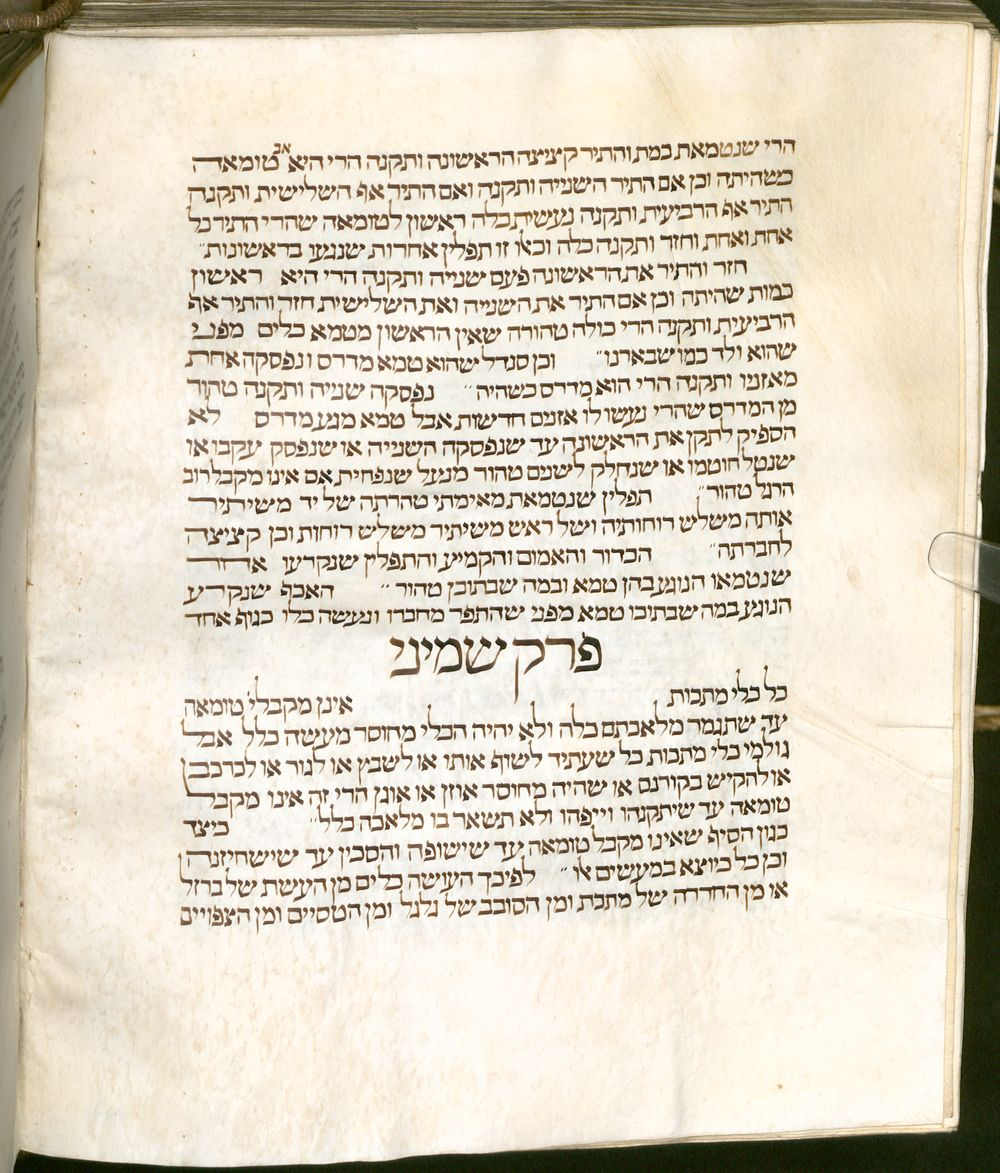 הרי שנטמאת במת והתיר קציצה הראשונה ותקנה הרי היא אב טומאה
כשהיתה וכן אם התיר השנייה ותקנה ואם התיר אף השלישית ותקנה
התיר אף הרביעית ותקנה נעשית כלה ראשון לטומאה שהרי התיר כל
אחת ואחת וחזר ותקנה כלה וכאלו זו תפלין אחרות שנגעו בראשונות״
חזר והתיר את הראשונה פעם שנייה ותקנה הרי היא ראשון
כמות שהיתה וכן אם התיר את השנייה ואת השלישית חזר והתיר אף
הרביעית ותקנה הרי כולה טהורה שאין הראשון מטמא כלים מפני
שהוא ולד כמו שבארנו״ וכן סנדל שהוא טמא מדרס ונפסקה אחת
מאזניו ותקנה הרי הוא מדרס כשהיה״ נפסקה שנייה ותקנה טהור
מן המדרס שהרי נעשו לו אזנים חדשות אבל טמא מגע מדרס לא
הספיק לתקן את הראשונה עד שנפסקה השנייה או שנפסק עקבו או
שנטל חוטמו או שנחלק לשנים טהור מנעל שנפחית אם אינו מקבל רוב
הרגל טהור״ תפלין שנטמאת מאימתי טהרתה של יד משיתיר
אותה משלש רוחותיה ושל ראש משיתיר משלש רוחות וכן קציצה
לחברתה״ הכדור והאמום והקמיע והתפלין שנקרעו אחר
שנטמאו הנוגע בהן טמא ובמה שבתוכן טהור״ האכף שנקרע
הנוגע במה שבתוכו טמא מפני שהתפר מחברו ונעשה כלו כגוף אחד
פרק שמיני
כל כלי מתכות אינן מקבלי׳ טומאה
עד שתגמר מלאכתם כלה ולא יהיה הכלי מחוסר מעשה כלל אבל
גולמי כלי מתכות כל שעתיד לשוף אותו או לשבץ או לגור או לכרכב
או להקיש בקורנס או שהיה מחוסר אוזן או אוגן הרי זה אינו מקבל
טומאה עד שיתקנהו וייפהו ולא תשאר בו מלאכה כלל״ כיצד
כגון הסיף שאינו מקבל טומאה עד שישופה והסכין עד שישחיזנה
וכן כל כיוצא במעשים אלו״ לפיכך העושה כלים מן העשת של ברזל
או מן החררה של מתכת ומן הסובב של גלגל ומן הטסיים ומן הצפויים